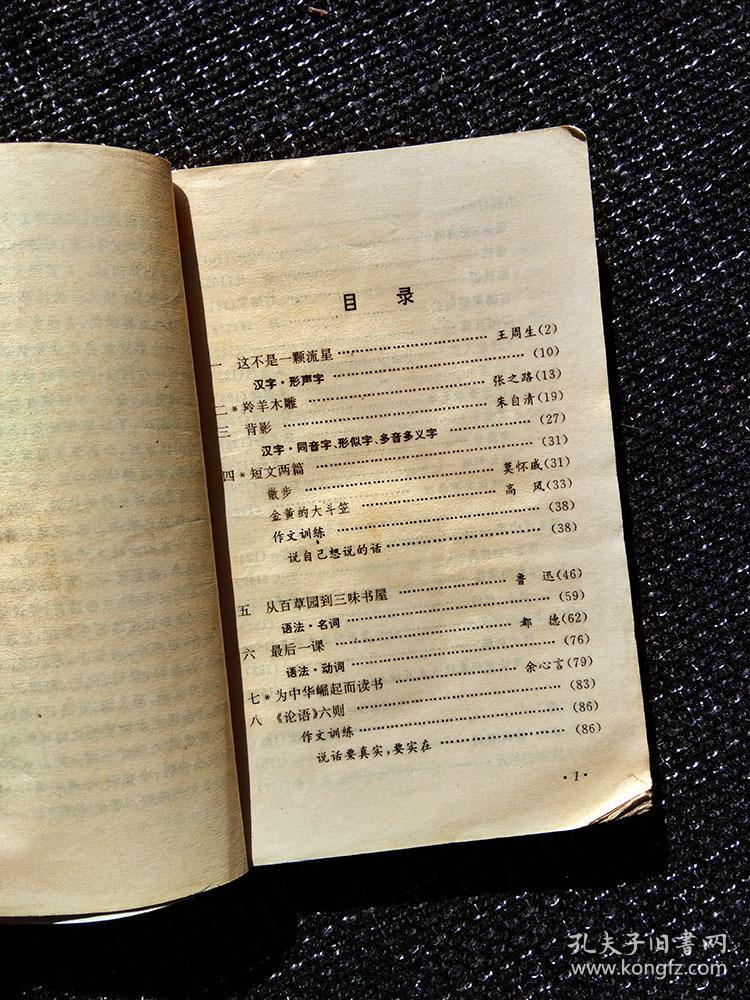 目 录
一 这不是一颗流星……王周生(2)
汉字·形声字……(10)
二*羚羊木雕……张之路(13)
三 背影……朱自清(19)
汉字·同音字、形似字、多音多义字……(27)
四*短文两篇……(31)
散步……莫怀戚(31)
金黄的大斗笠……高 风(33)
作文训练……(38)
说自己想说的话……(38)
五 从百草园到三味书屋……鲁 迅(46)
语法·名词……(59)
六 最后一课……都 德(62)
语法·动词……(76)
七*为中华崛起而读书……余心言(79)
八 《论语》六则……(83)
作文训练……(86)
说话要真实，要实在……(86)
·1·
孔夫子旧書网
www.kongfz.com